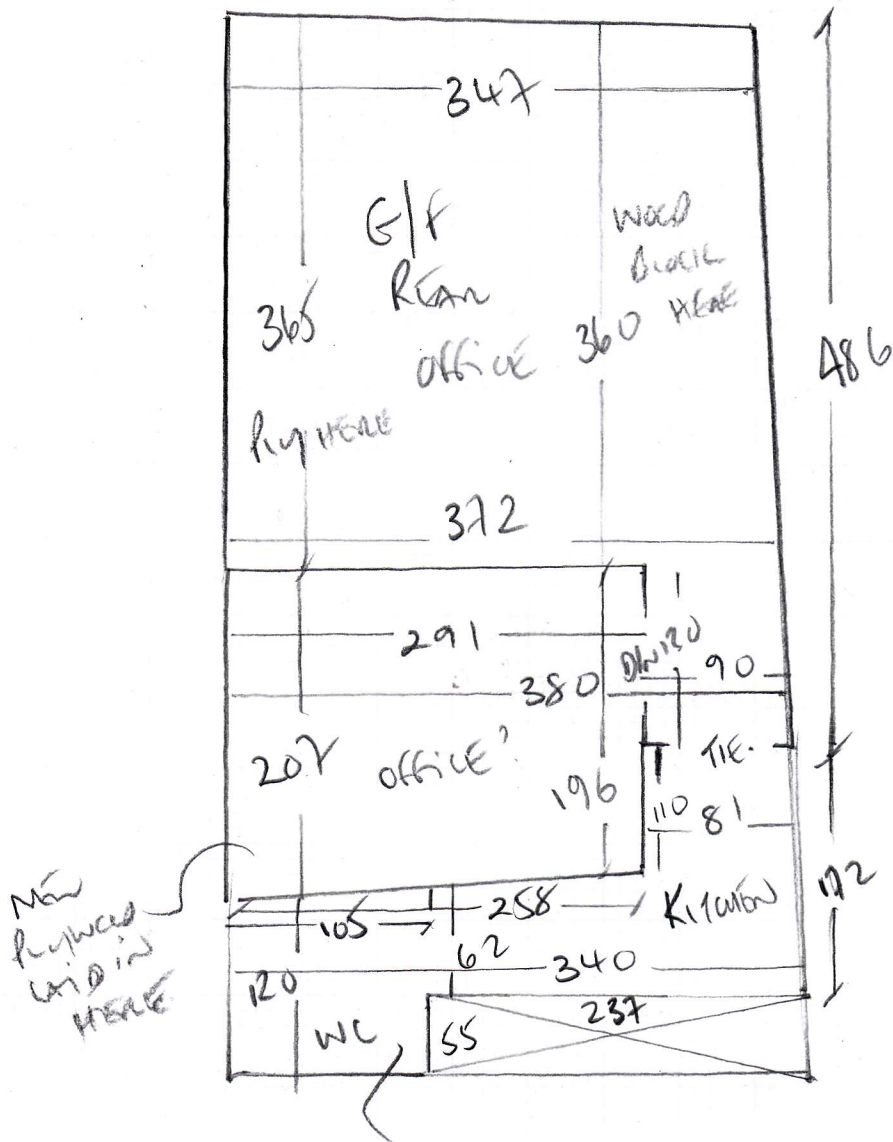 347
G/F
REAR
OFFICE
WOOD
BLOCK
HERE
365
360
486
PLY HERE
372
291
DIV 130
90
380
207
OFFICE?
196
TIE.
110
81
172
NEW
PLYWOOD
LAID IN
HERE
105
258
KITCHEN
62
340
120
237
WC
55